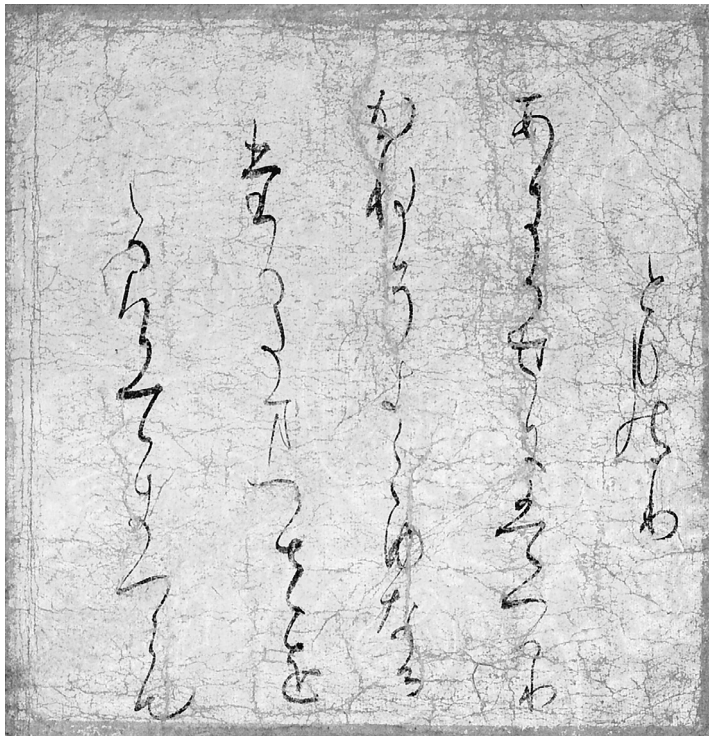 とものり
あきかせにはつかり
かねそきこゆなる
たかたまつさを
かけてきつらむ